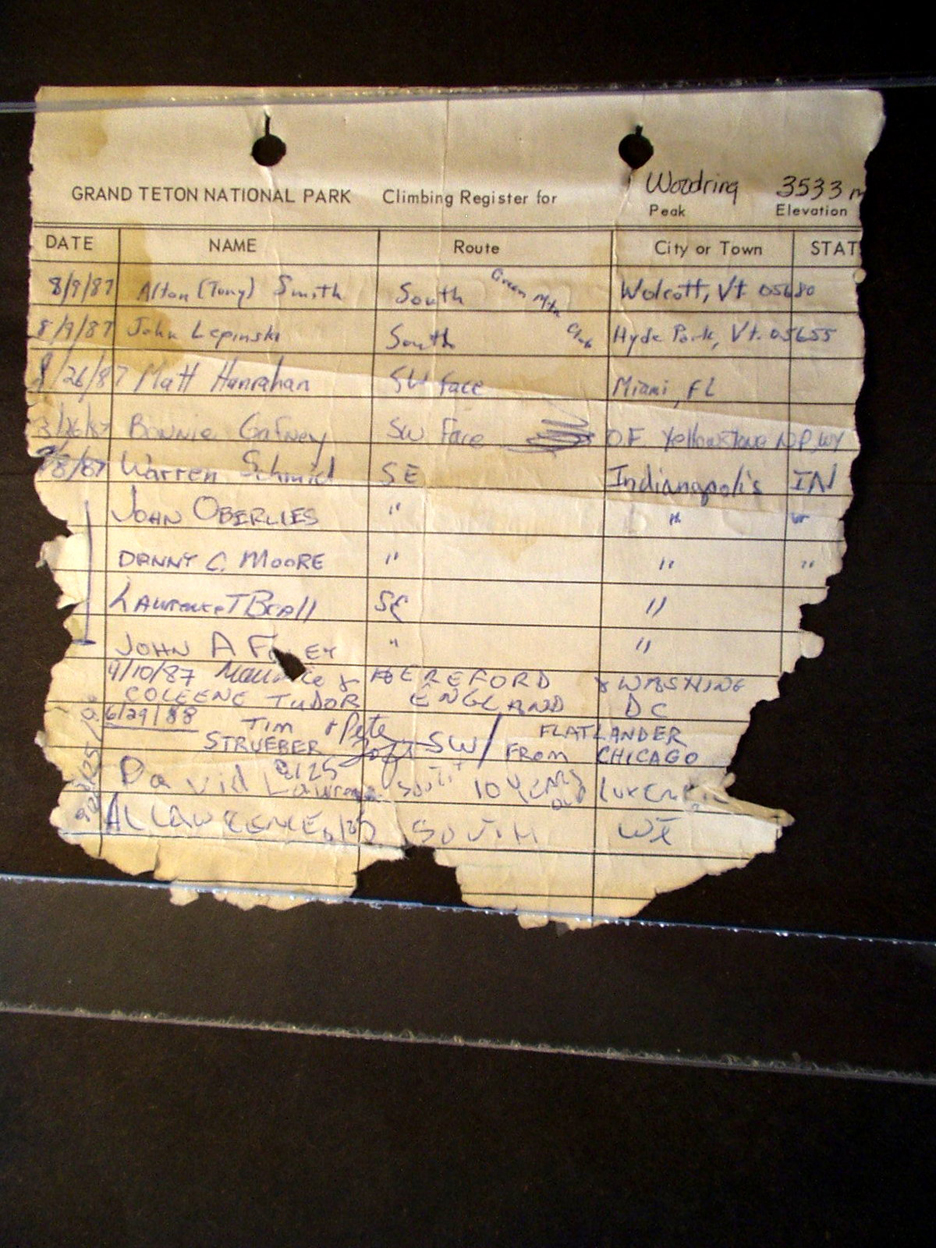 Woodring 3533 m
GRAND TETON NATIONAL PARK Climbing Register for
Peak Elevation
DATE NAME Route City or Town STAT
8/9/87 Alton (Tony) Smith South Green Mtn Club Wolcott, Vt 05680
8/9/87 John Lepinski South Hyde Park, Vt. 05655
/26/87 Matt Hanrahan SW face Miami, FL
/26/87 Bonnie Gafney SW Face O.F. Yellowstone N.P, WY
/8/87 Warren Schmid SE Indianapolis IN
JOHN OBERLIES " " "
DANNY C. MOORE " " "
LAWRENCE T BEALL SE "
JOHN A F EY " "
9/10/87 Maurice & HEREFORD & WASHING
COLEENE TUDOR ENGLAND DC
6/29/88 TIM + Pete SW/ FLATLANDER
STRUEBER FROM CHICAGO
David Lawrence 8/25 SOUTH 10 years old
AL LAWRENCE SOUTH WI